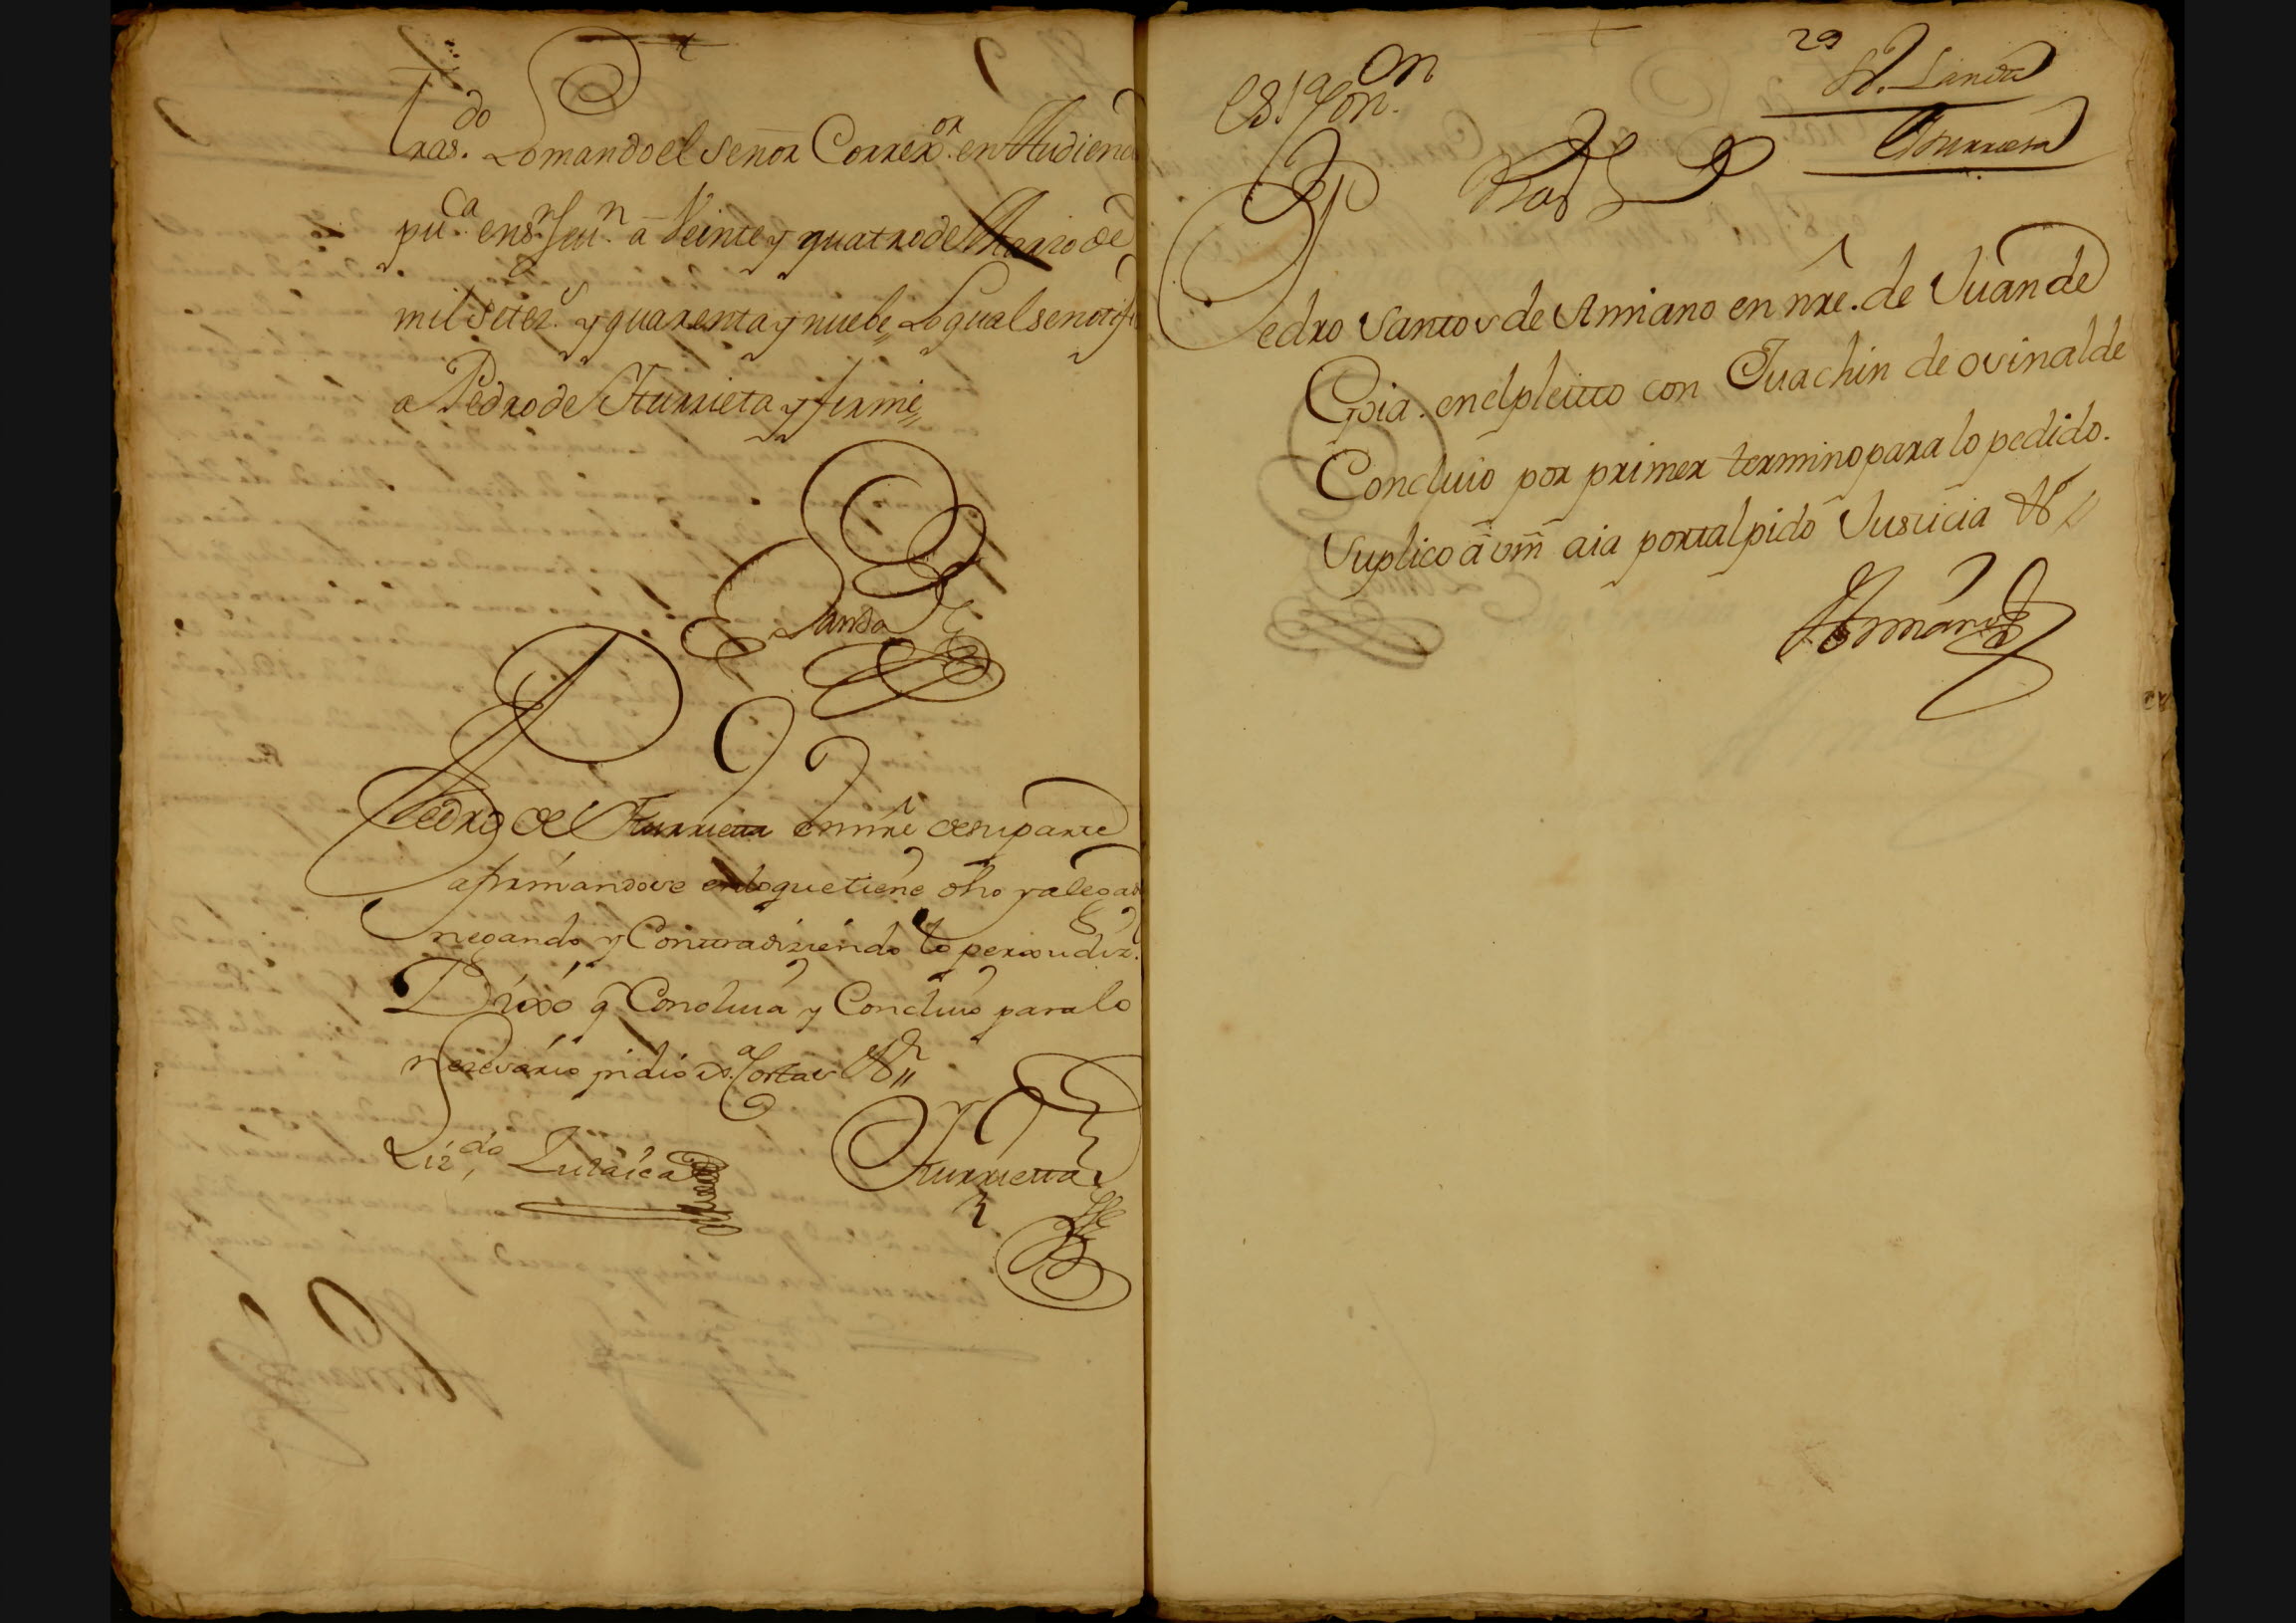 tras.do Lo mando el Señor Correx.or en Audiencia
pu.ca en S.n Seu.n a Veinte y quatro de Marzo de
mil Setez.s y quarenta y nuebe, Lo qual se notifi
a Pedro de Iturrieta y firmè,,
Landa
Pedro de Iturrietta en nrê de su parte
afirmandose en lo que tiene dho y alegado
negando y Contradiziendo lo perjudiz.
Dixo q Concluia y Concluió para lo
nezesario pidió Costas &,,
Liz.do Zulaica
Iturrietta
29
S.r Landa
Iturrieta
Pedro Santos de Amiano en nrê. de Juan de
Goia. en el pleitto con Juachin de osinalde
Concluio por primer termino para lo pedido.
Suplico â vm̃ aia por tal pido Justicia &
Amiano